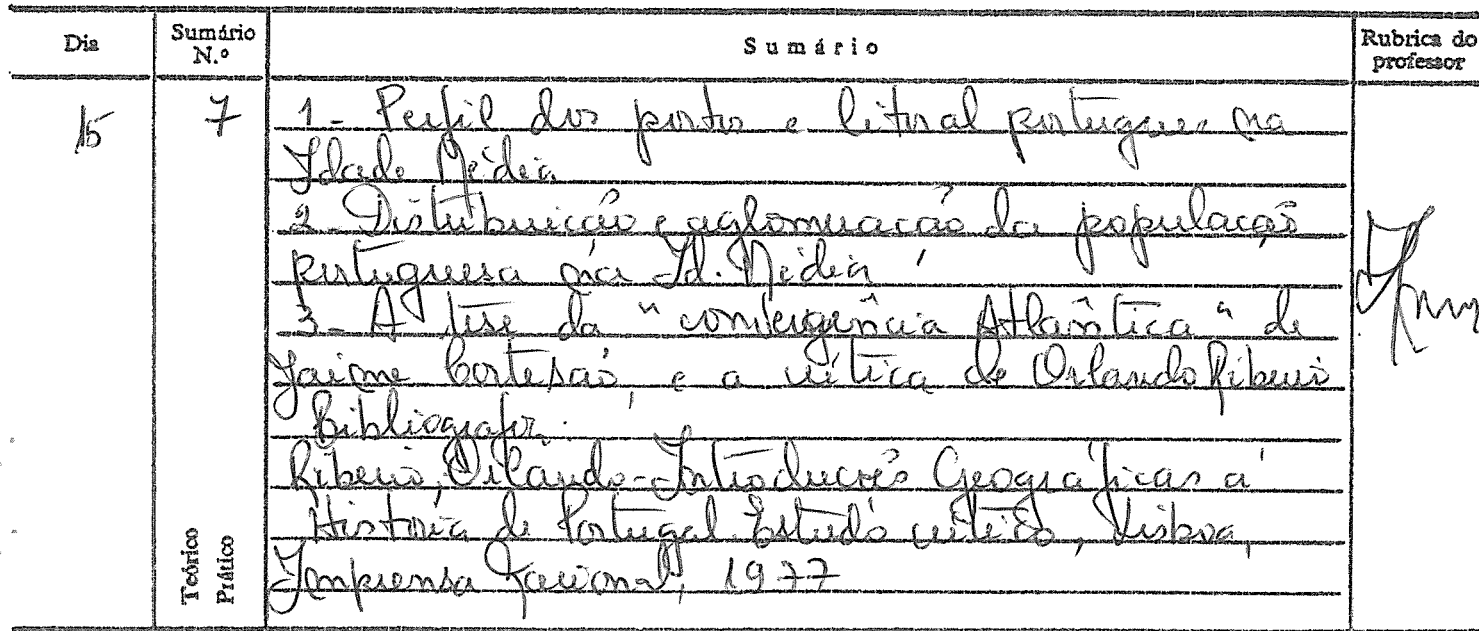 Dia Sumário N.º Sumário Rubrica do professor
15 7 1 - Perfil dos portos e litoral português na
Idade Média
2 - Distribuição e aglomeração da população
portuguesa na Id. Média
3 - A tese da "convergência Atlântica" de
Jaime Cortesão, e a crítica de Orlando Ribeiro
Bibliografia:
Ribeiro, Orlando - Introduções Geográficas à
História de Portugal. Estudo crítico, Lisboa,
Imprensa Nacional, 1977
Teórico
Prático